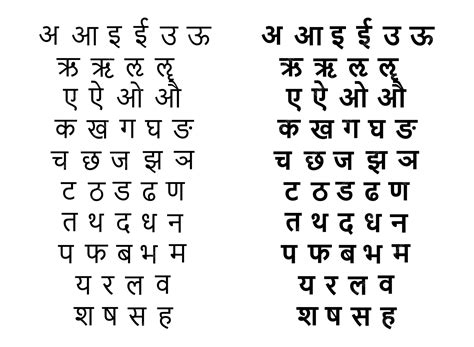 अ आ इ ई उ ऊ
ऋ ॠ ऌ ॡ
ए ऐ ओ औ
क ख ग घ ङ
च छ ज झ ञ
ट ठ ड ढ ण
त थ द ध न
प फ ब भ म
य र ल व
श ष स ह
अ आ इ ई उ ऊ
ऋ ॠ ऌ ॡ
ए ऐ ओ औ
क ख ग घ ङ
च छ ज झ ञ
ट ठ ड ढ ण
त थ द ध न
प फ ब भ म
य र ल व
श ष स ह